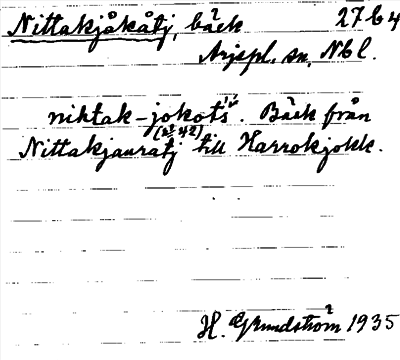 Nittakjåkåtj, bäck 27 C 4
Arjepl. sn, Nbl.
niktak-jokots̀. Bäck från
Nittakjauratj till Harrokjokk.
H. Grundström 1935